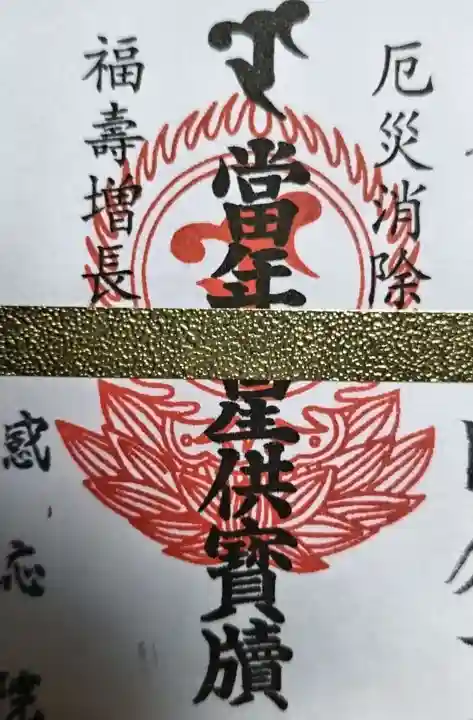 厄災消除
當年星供寶牘
福壽増長
感応院